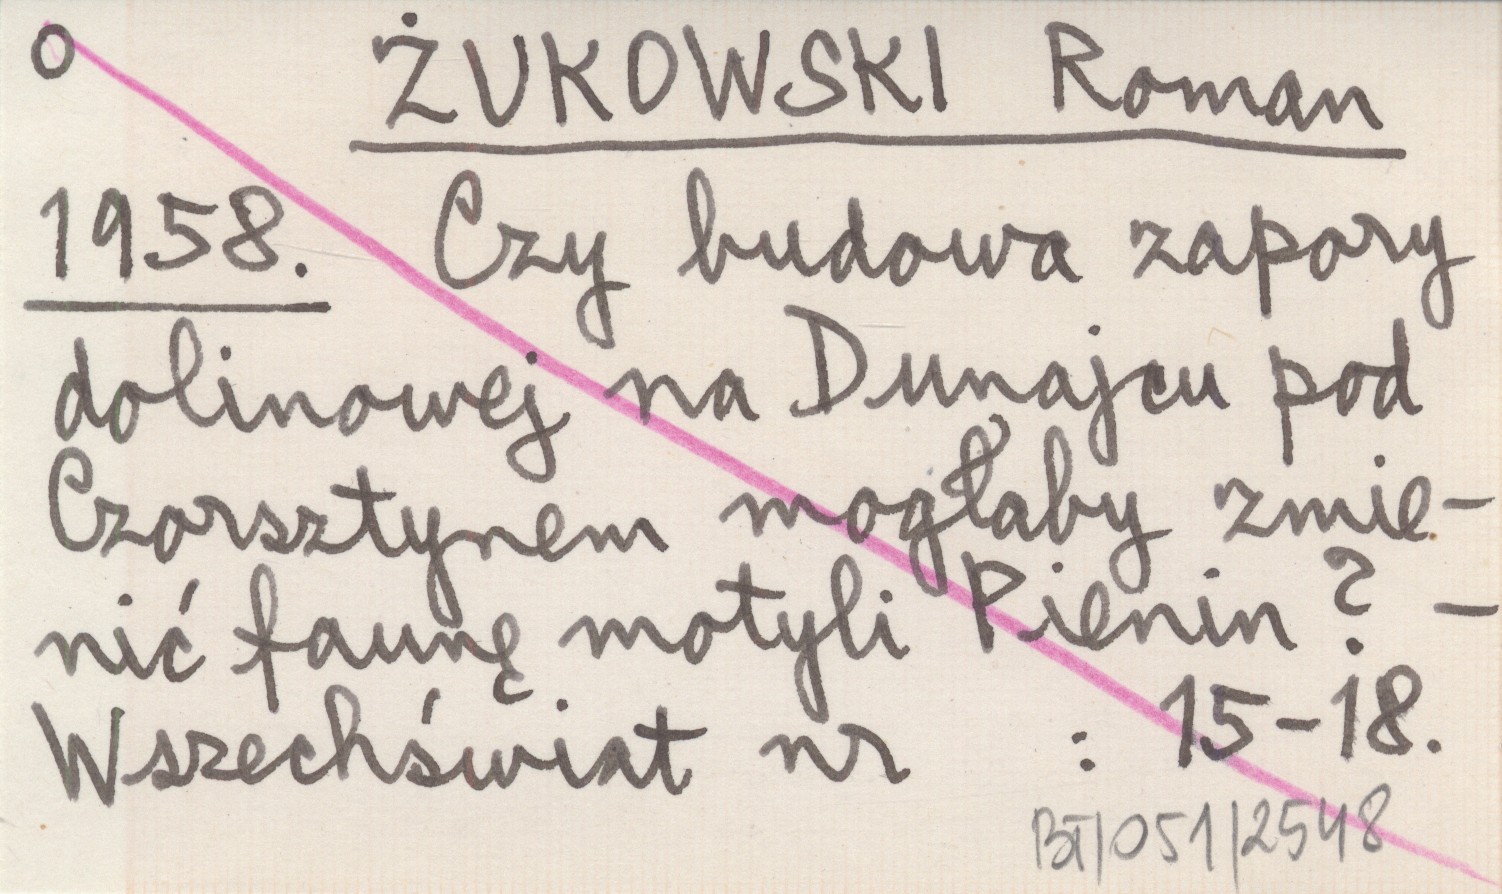 O ŻUKOWSKI Roman
1958. Czy budowa zapory
dolinowej na Dunajcu pod
Czorsztynem mogłaby zmie-
nić faunę motyli Pienin? -
Wszechświat nr : 15-18.
BT/051/2548